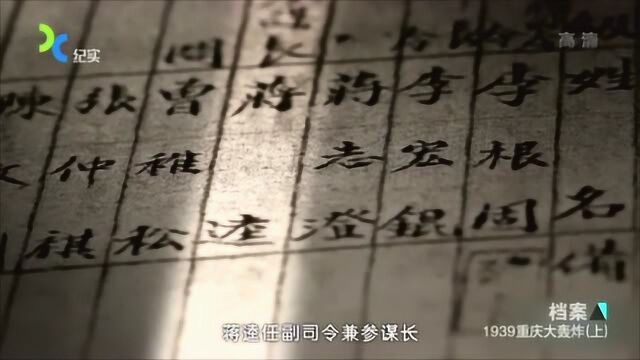 纪实
高清
姓名
李根固
李宏錕
蔣志澄
蔣逵
曾稚松
張仲祺
陳
備
蒋逵任副司令兼参谋长
档案
1939重庆大轰炸(上)